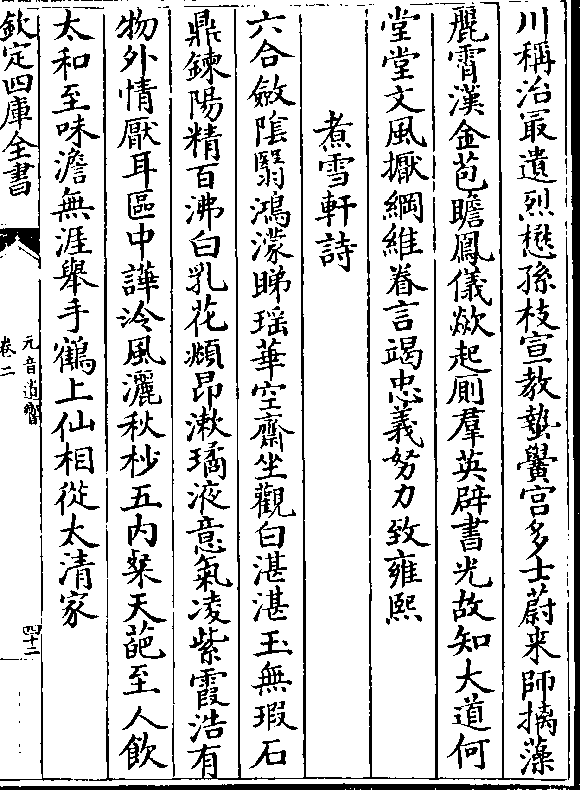 川稱治最遺烈懋孫枝宣教蟄黌宮多士蔚来師摛藻
麗霄漢金苞瞻鳳儀歘起厠羣英辟書光故知大道何
堂堂文風擫綱維眷言竭忠義努力致雍熙
煮雪軒詩
六合斂陰翳鴻濛睇瑶華空齋坐觀白湛湛玉無瑕石
鼎鍊陽精百沸白乳花頫昂漱璚液意氣凌紫霞浩有
物外情厭耳區中譁泠風灑秋杪五內粲天葩至人飲
太和至味澹無涯舉手鶴上仙相從太清家
欽定四庫全書
元音遺響
卷二
四十二